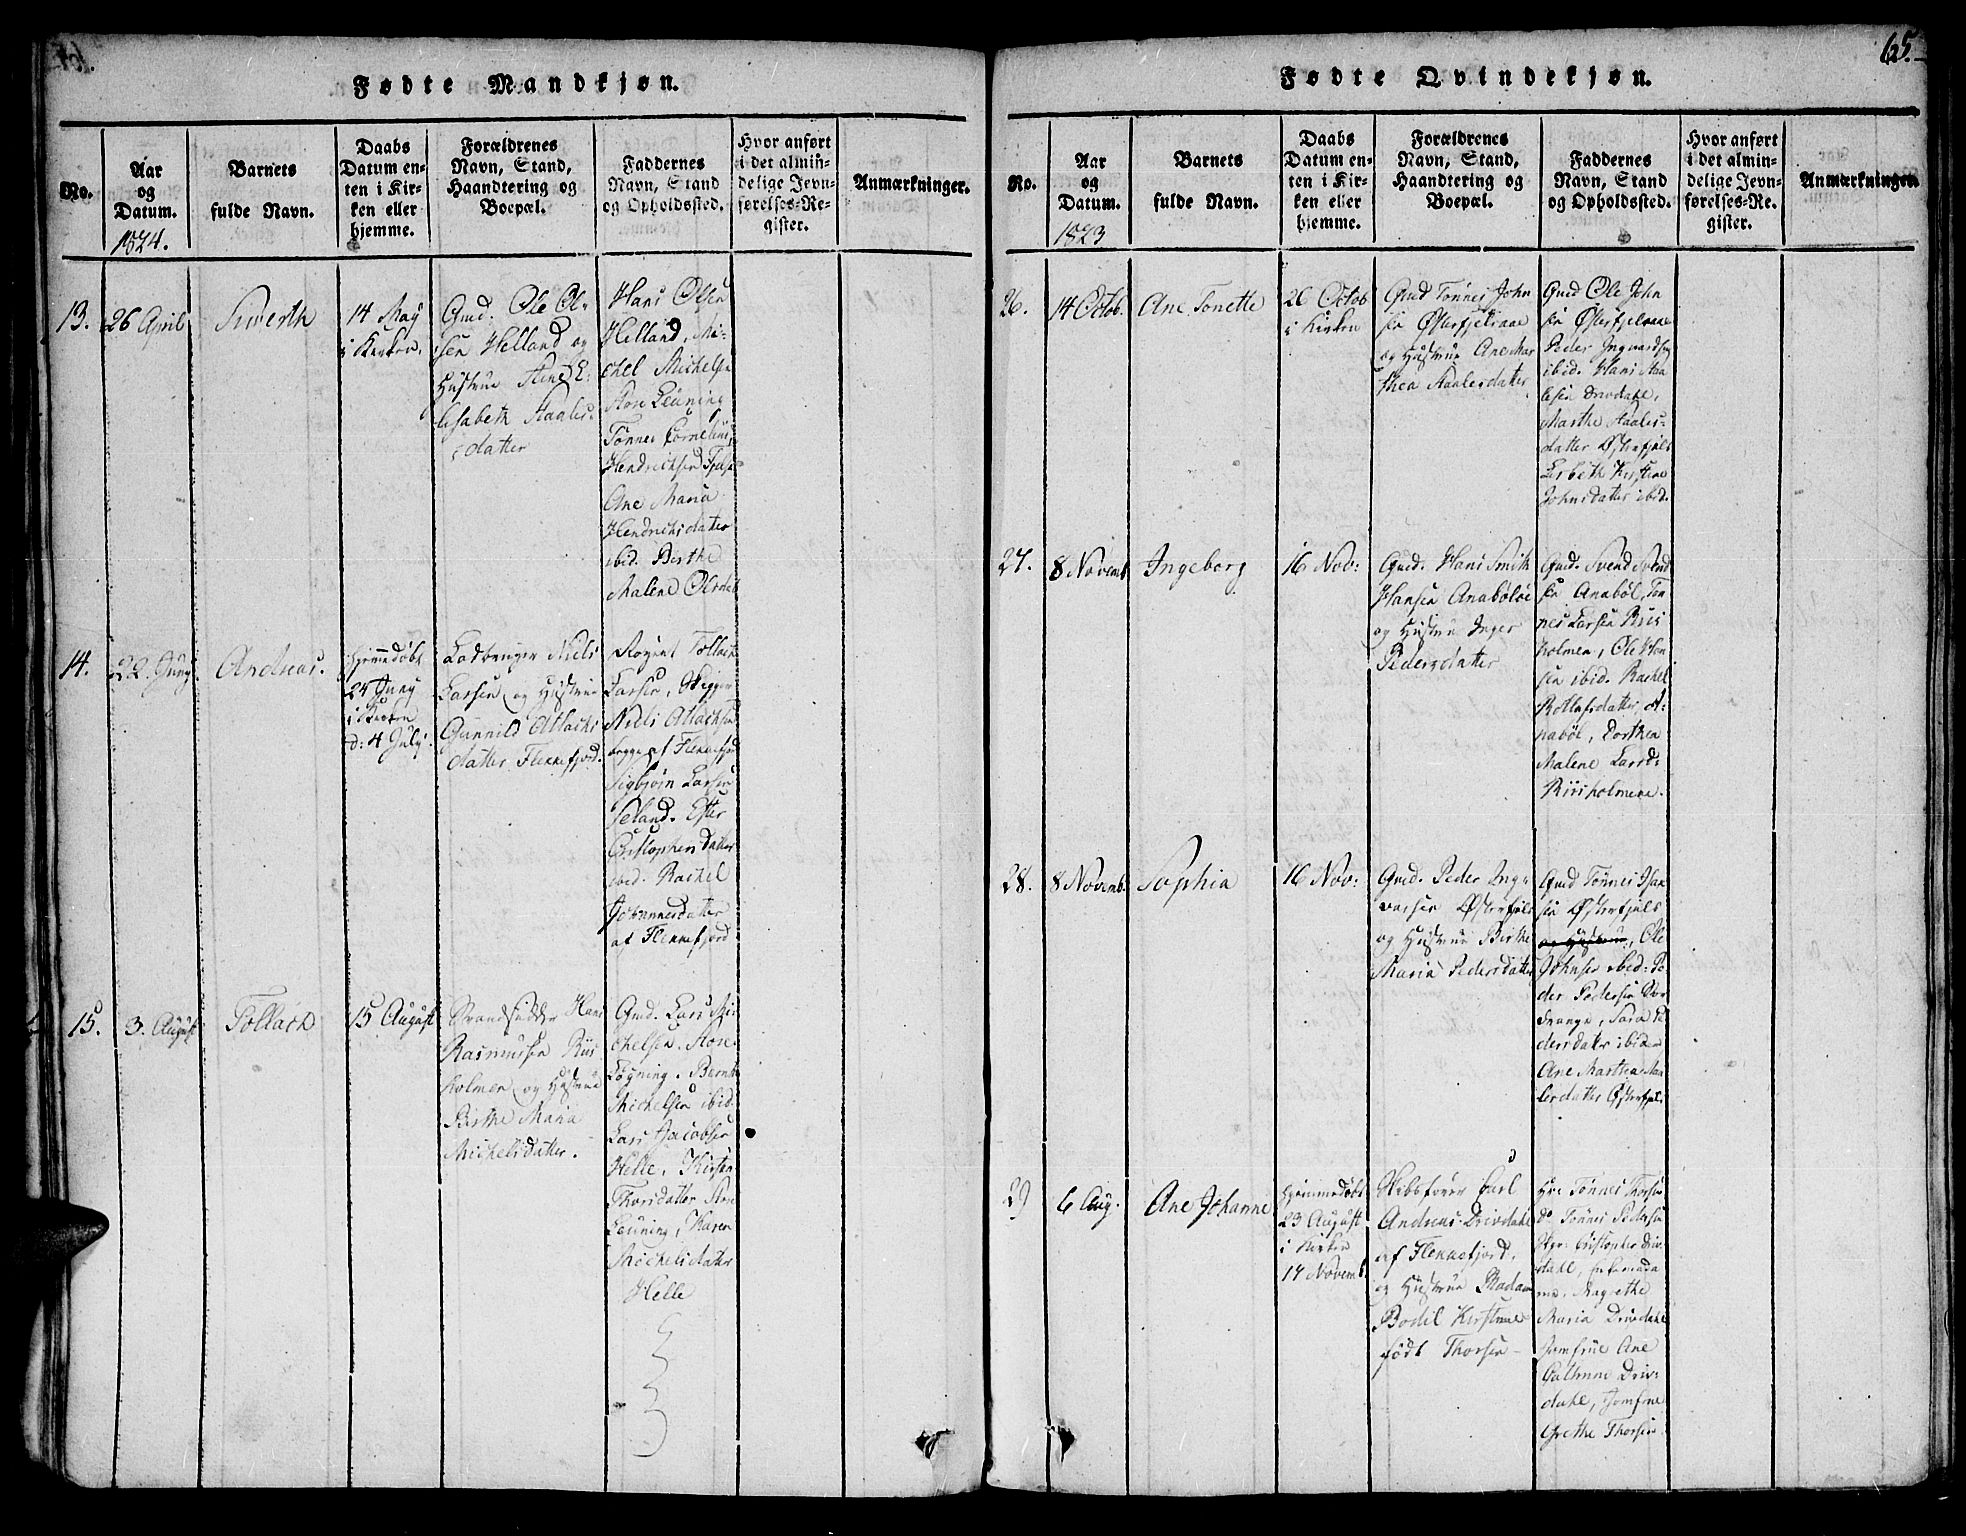 Fødte Mandkjøn.
No.
Aar
og
Datum.
1824.
Barnets
fulde Navn.
Daabs
Datum en-
ten i Kir-
ken eller
hjemme.
Forældrenes
Navn, Stand,
Haandtering og
Boepæl.
Faddernes
Navn, Stand
og Opholdssted.
Hvor anført
i det almin-
delige Jevn-
førelses-Re-
gister.
Anmærkninger.
13.
26 April
Sivert
14 May
i Kirken.
Gmd. Ole Ol-
sen Helland og
Hustrue Stine E-
lisabeth Staales-
datter
Hans Olsen
Helland, Mi-
chel Michels.
Store Leuning
Tønnes Cornelius
Hendrichsen
Ane Maria
Hendrichsdatter
ibid. Berthe
Malene Olsdat
14.
22 Juny
Andreas.
Hjemmedøbt
24 Juny
i Kirken
d: 4 July.
Niels
Larsen og Hustrue
Gunnild Atlachs
datter Flekkefjord.
Tollach
Larsen, Skipper
Niels Atlachsen
begge af Flekkefj.
Sigbjørn Larsen
Seland. Ester
Christophersdatter
ibid. Rachel
Johannesdatter
af Flekkefjord
15.
3. August
Tollach
15 August
Strandsidder Hans
Rasmussen Riis
holmen og Hustrue
Birthe Maria
Michelsdatter.
Gmd. Lars Mi-
chelsen. Store
Løgning. Bernt
Michelsen ibid.
Lars Jacobsen
Helle, Kirsten
Thorsdatter Store
Leuning, Karen
Michelsdatter
Helle
65.
Fødte Qvindekjøn.
No.
Aar
og
Datum.
1823
Barnets
fulde Navn.
Daabs
Datum en-
ten i Kir-
ken eller
hjemme.
Forældrenes
Navn, Stand,
Haandtering og
Boepæl.
Faddernes
Navn, Stand
og Opholdssted.
Hvor anført
i det almin-
delige Jevn-
førelses-Re-
gister.
Anmærkninger.
26.
14 Octob.
Ane Tonette
26 Octob
i Kirken
Gmd Tønnes John
sen Østerfjelraae
og Hustrue Ane Mar
thea Staalesdatter
Gmd Ole John
sen Østerfjelraae
Peder Ingvardsen
ibid. Hans Staa
lesen Drivdahl,
Marthe Staales-
datter Østerfjels
Lisbeth Kirstine
Johnsdatter ibid.
27.
8 Novemb
Ingeborg
16 Nov:
Gmd. Hans Smith
Hansen Anabøløe
og Hustrue Inger
Pedersdatter
Gmd. Svend Svend
sen Anabøl, Tøn
nes Larsen Riis
holmen, Ole
sen ibid. Rachel
Rollafsdatter, A-
nabøl, Dorthea
Malene Larsd:
Riisholmene.
28.
8 Novemb.
Sophia
16 Nov:
Gmd. Peder Ing-
varsen Østerfjels
og Hustrue Birthe
Maria Pedersdatter
Gmd Tønnes Isax
sen Østerfjels
og Hustrue, Ole
Johnsen ibid: Pe-
der Pedersen
Sara Pe
dersdatter ibid:
Ane Marthea Staa
lesdatter Østerfjels
29
6 Aug.
Ane Johanne
Hjemmedøbt
23 August
i Kirken
14 Novemb.
Skibsfører Carl
Andreas Drivdahl
af Flekkefjord.
og Hustrue Madame
Bodil Kirstine
født Thorsen
Hr. Tønnes Thorsen
do Tønnes Pedersen
Christopher Driv-
dahl, Enkemada
me. Magrethe
Maria Drivdahl
Jomfrue Ane
Cathrine Driv-
dahl, Jomfrue
Grethe Thorsen